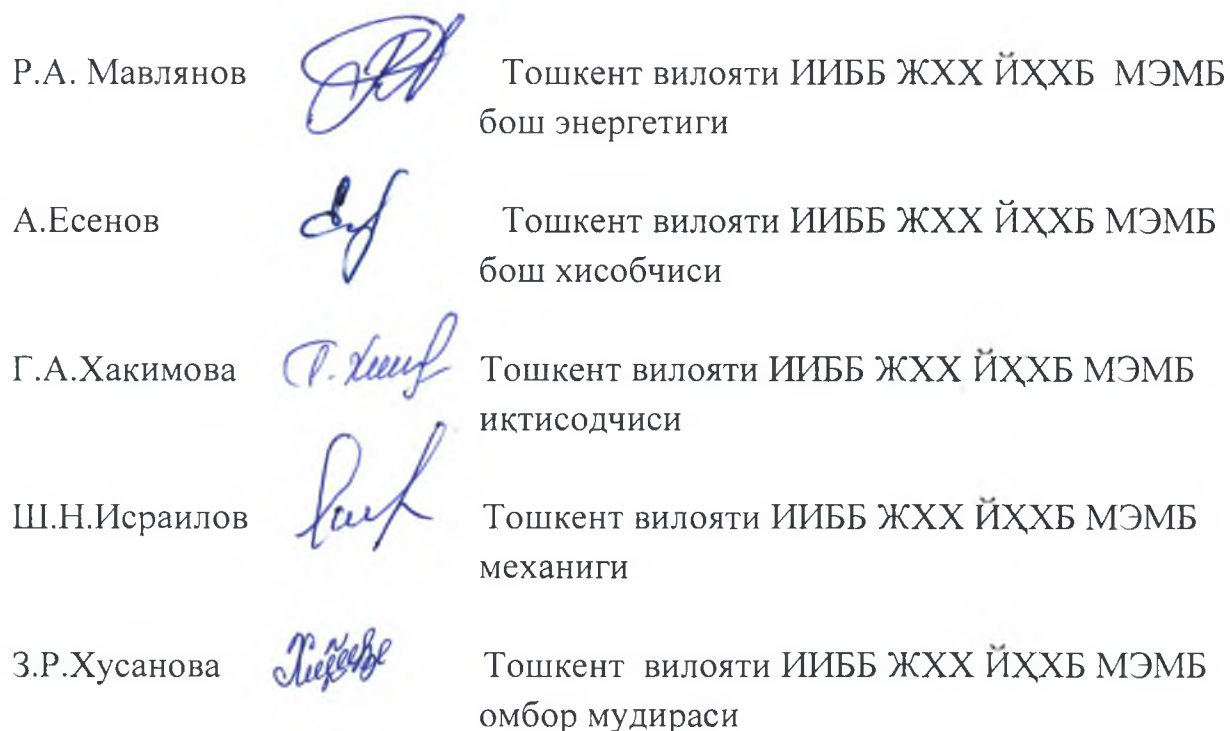 Р.А. Мавлянов Тошкент вилояти ИИББ ЖХХ ЙҲХБ МЭМБ
бош энергетиги
А.Есенов Тошкент вилояти ИИББ ЖХХ ЙҲХБ МЭМБ
бош хисобчиси
Г.А.Хакимова Тошкент вилояти ИИББ ЖХХ ЙҲХБ МЭМБ
иқтисодчиси
Ш.Н.Исраилов Тошкент вилояти ИИББ ЖХХ ЙҲХБ МЭМБ
механиги
З.Р.Хусанова Тошкент вилояти ИИББ ЖХХ ЙҲХБ МЭМБ
омбор мудираси